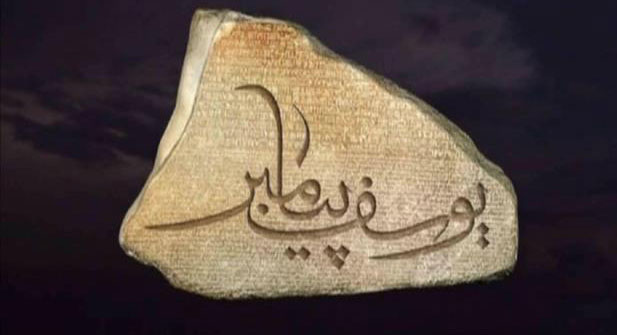 یوسف پیامبر